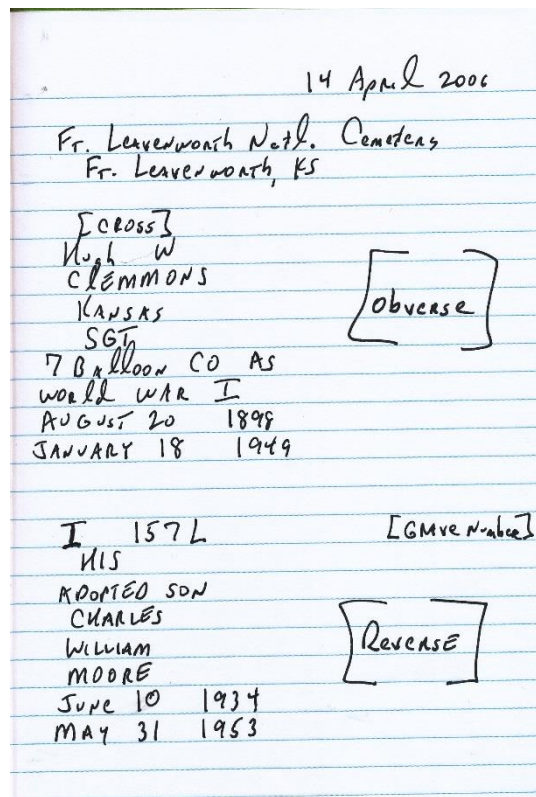 14 April 2006
Ft. Leavenworth Natl. Cemetery
Ft. Leavenworth, KS
[CROSS]
Hugh W
CLEMMONS
KANSAS
[Obverse]
SGT
7 Balloon CO AS
WORld WAR I
AUGUST 20 1898
JANUARY 18 1949
I 157L [GRAve Number]
HIS
ADOPTED SON
CHARLES
WILLIAM
[ReveRSE]
MOORE
June 10 1934
MAY 31 1953